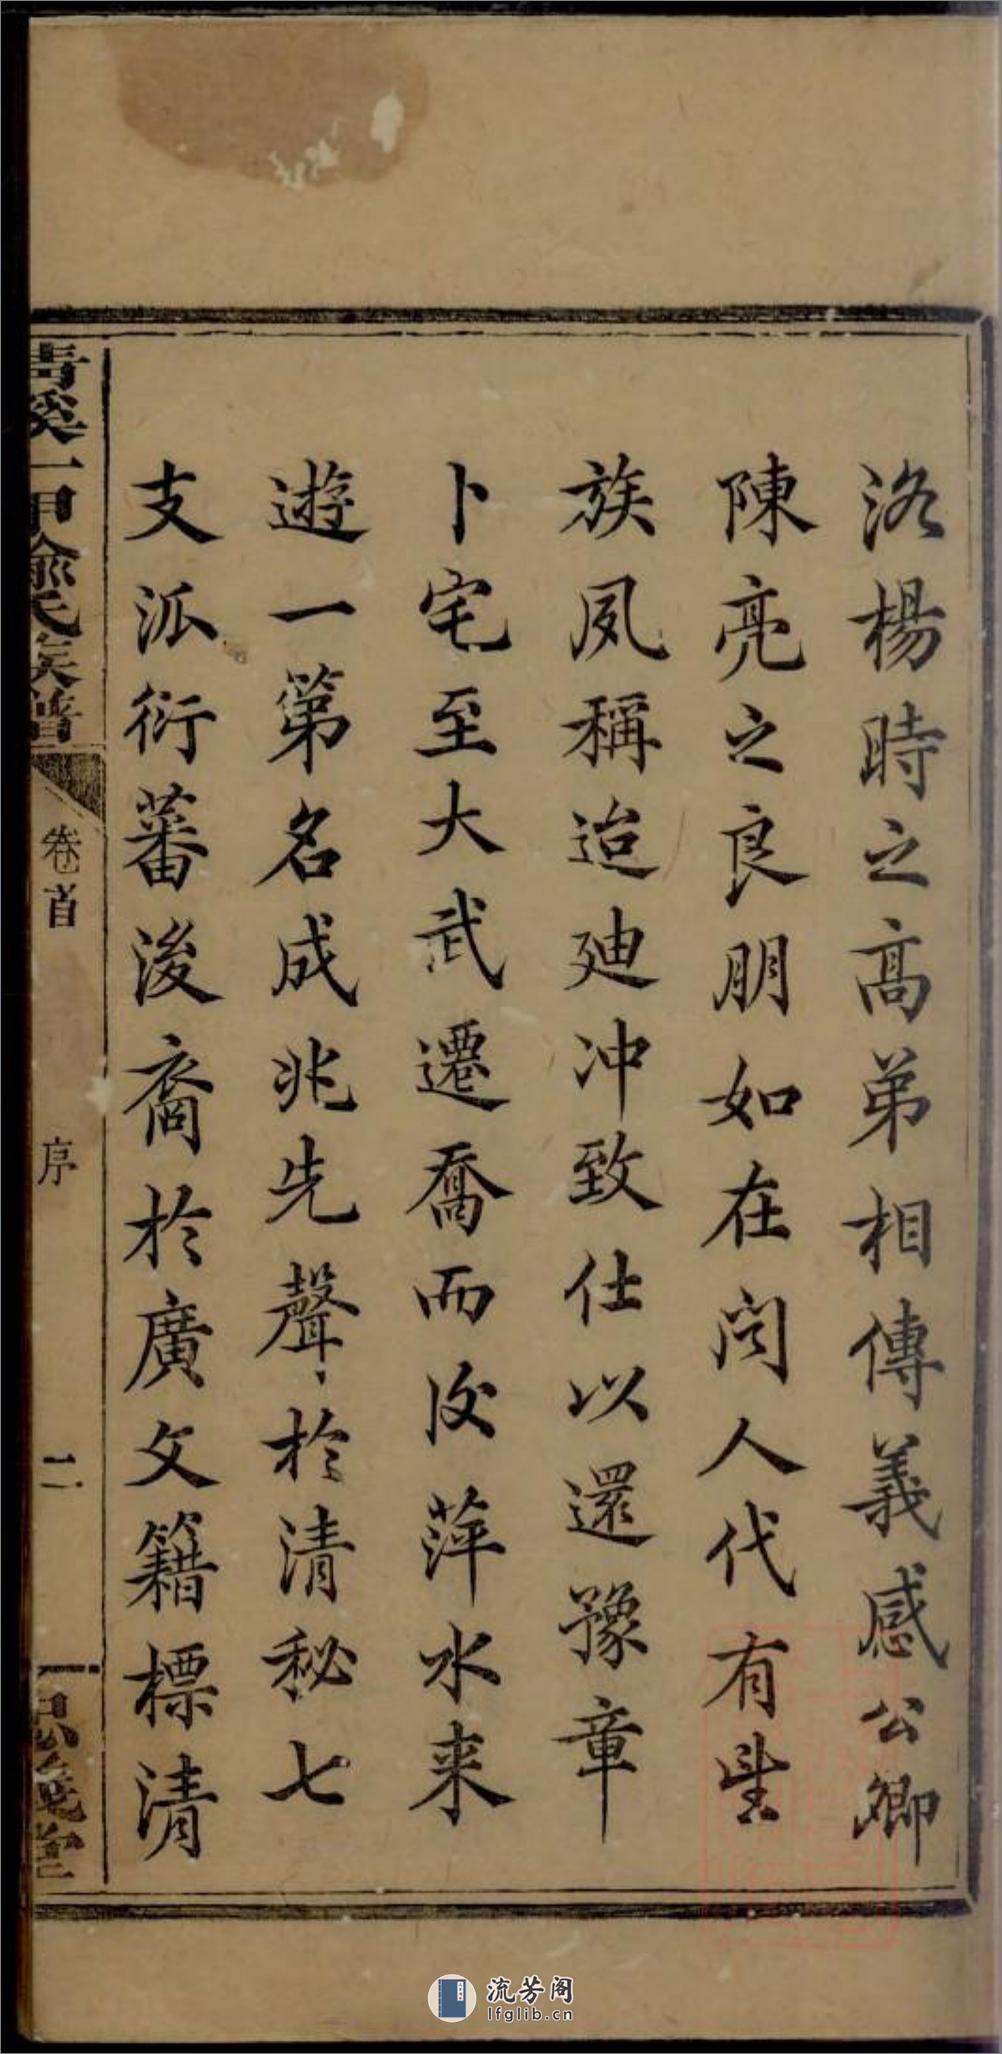 洛楊時之高弟相傳義感公卿
陳亮之良朋如在閃人代有望
族夙稱迨廸冲致仕以還豫章
卜宅至大武遷喬而後萍水来
遊一第名成兆先聲於清秘七
支派衍蕃後裔於廣文籍標清
青溪一甲俞氏族譜
卷首
序
二
流芳阁
lfglib.cn